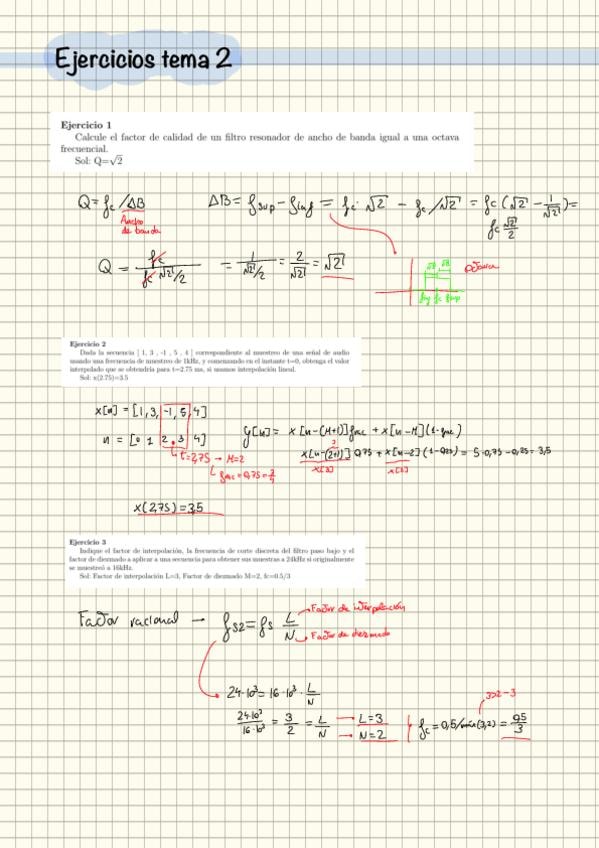 Ejercicios tema 2
Ejercicio 1
Calcule el factor de calidad de un filtro resonador de ancho de banda igual a una octava
frecuencial.
Sol: Q=√2
Q = fc/ΔB
Ancho
de banda
ΔB = fsup - finf = fc · √2 - fc/√2 = fc (√2 - 1/√2) =
fc √2/2
Q = fc / (fc √2/2) = 1/(√2/2) = 2/√2 = √2
Octava
finf fc fsup
Ejercicio 2
Dada la secuencia [ 1, 3 , -1 , 5 , 4 ] correspondiente al muestreo de una señal de audio
usando una frecuencia de muestreo de 1kHz, y comenzando en el instante t=0, obtenga el valor
interpolado que se obtendría para t=2.75 ms, si usamos interpolación lineal.
Sol: x(2.75)=3.5
x[n] = [1, 3, -1, 5, 4]
n = [0 1 2 3 4]
t=2,75 → M=2
frac = 0,75 = 3/4
y[n] = x[n-(M+1)] frac + x[n-M] (1-frac)
x[n-(2+1)] 0,75 + x[n-2] (1-0,75) = 5·0,75 - 0,25 = 3,5
x[3] x[2]
x(2,75) = 3,5
Ejercicio 3
Indique el factor de interpolación, la frecuencia de corte discreta del filtro paso bajo y el
factor de diezmado a aplicar a una secuencia para obtener sus muestras a 24kHz si originalmente
se muestreó a 16kHz.
Sol: Factor de interpolación L=3, Factor de diezmado M=2, fc=0.5/3
Factor racional → fs2 = fs L/N
Factor de interpolación
Factor de diezmado
24·10³ = 16·10³ · L/N
24·10³/16·10³ = 3/2 = L/N → L=3
→ N=2
3>2→3
fc = 0,5/máx(3,2) = 0,5/3